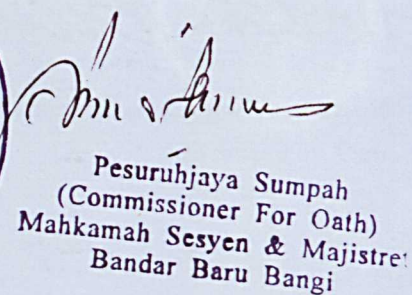 Pesuruhjaya Sumpah
(Commissioner For Oath)
Mahkamah Sesyen & Majistret
Bandar Baru Bangi